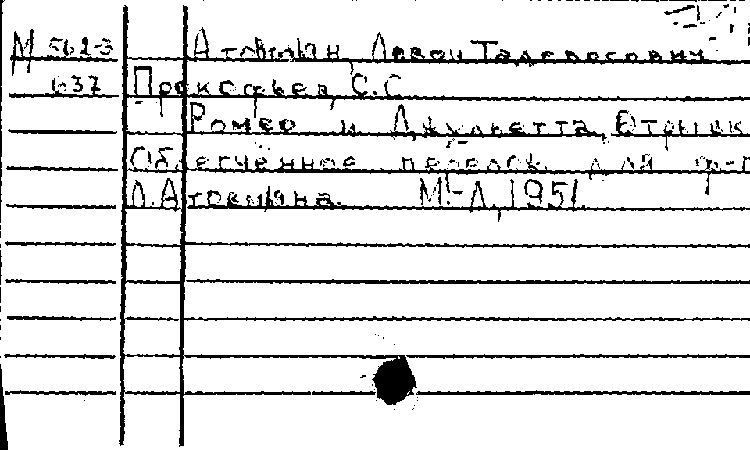 М 562-3 Атовмян, Левон Тадевосович
637 Прокофьев, С.С.
Ромео и Джульетта, Отрывк
Облегчённое перелож. для ф-п
Л. Атовмяна. М.-Л., 1951.